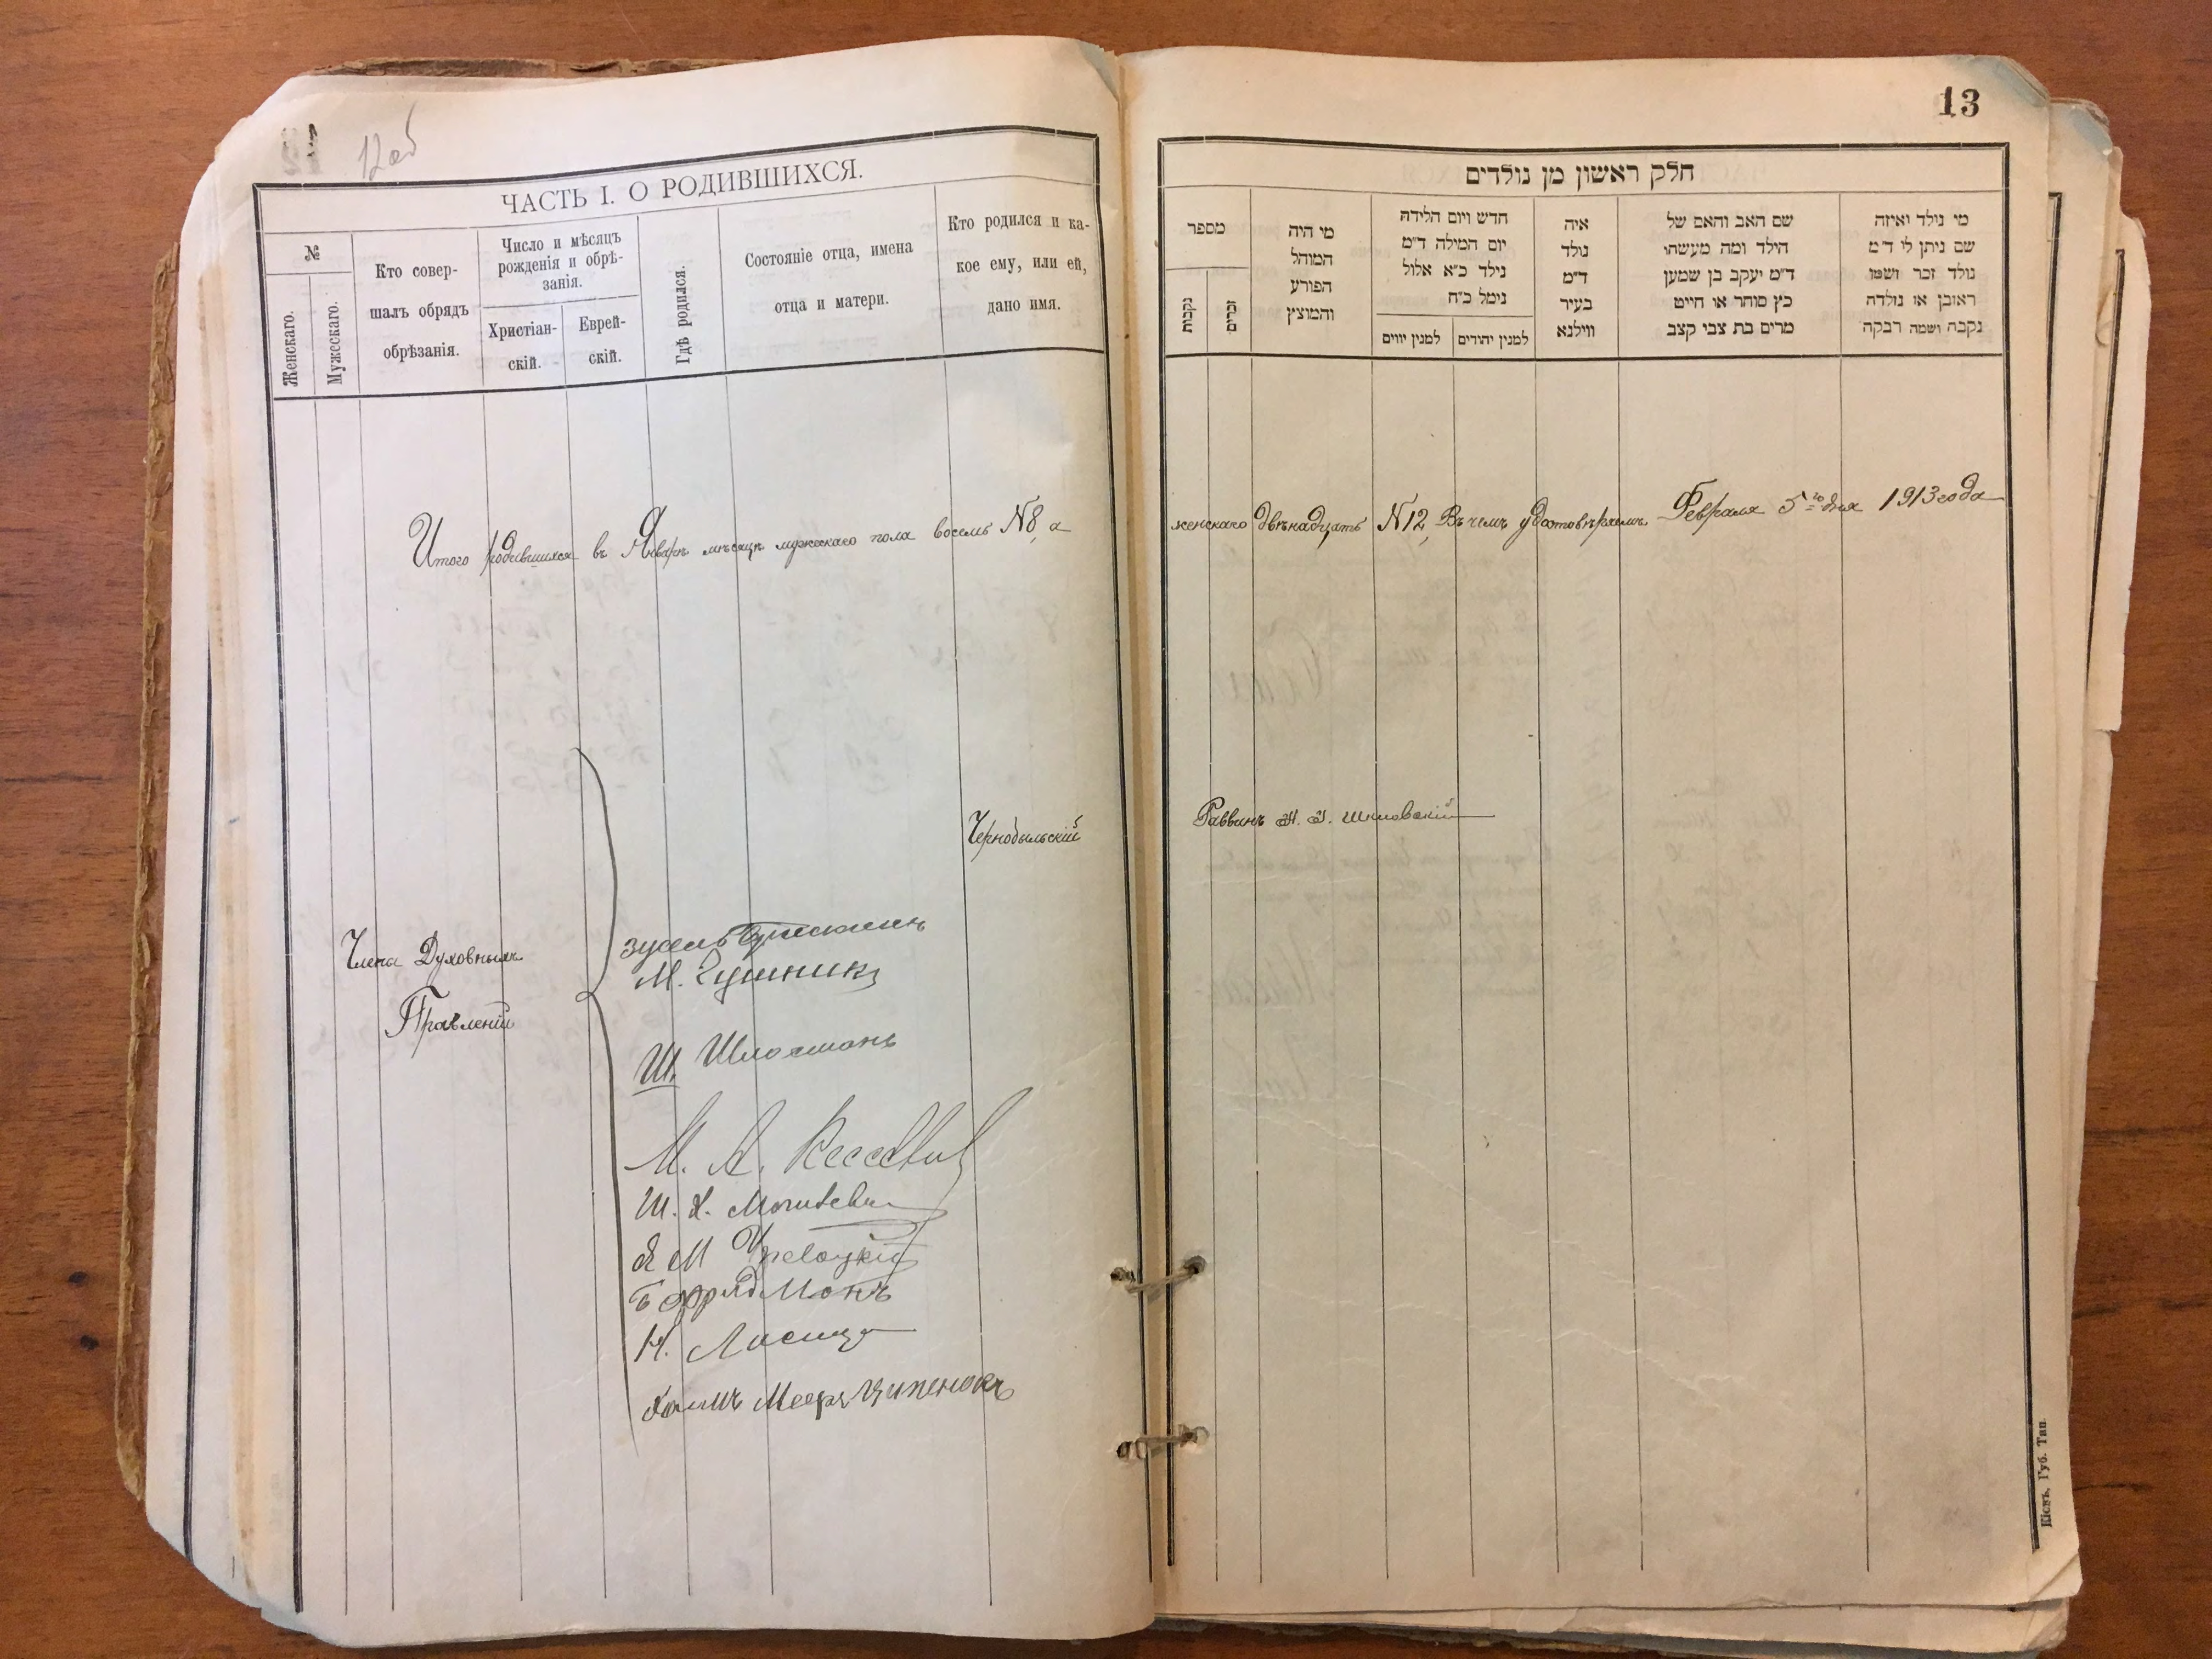 12об
ЧАСТЬ I. О РОДИВШИХСЯ.
№
Женскаго.
Мужескаго.
Кто совер-
шалъ обрядъ
обрѣзанія.
Число и мѣсяцъ
рожденія и обрѣ-
занія.
Христіан-
скій.
Еврей-
скій.
Гдѣ родился.
Состояніе отца, имена
отца и матери.
Кто родился и ка-
кое ему, или ей,
дано имя.
Итого родившихся въ Январѣ мѣсяцѣ мужескаго пола восемь №8, а
Чернобыльскій
Члены Духовныхъ
Правленій
Зусель
М.
Ш. Шлосманъ
М. А.
Ш. Х.
Я М
Б Фридманъ
Н. Лисица
Хаимъ Мееръ Ципенюкъ
13
חלק ראשון מן נולדים
מספר
נקבות
זכרים
מי היה
המוהל
הפורע
והמוצץ
חדש ויום הלידה
יום המילה ד״מ
נילד כ״א אלול
נימל כ״ח
למנין יווים
למנין יהודים
איה
נולד
ד״מ
בעיר
ווילנא
שם האב והאם של
הילד ומה מעשהו
ד״מ יעקב בן שמען
כץ סוחר או חייט
מרים בת צבי קצב
מי נילד ואיזה
שם ניתן לי ד״מ
נולד זכר ושמו
ראובן או נולדה
נקבה ושמה רבקה
женскаго двѣнадцать №12, Въ чемъ удостовѣряемъ Февраля 5го дня 1913 года
Раввинъ
Кіевъ, Губ. Тип.